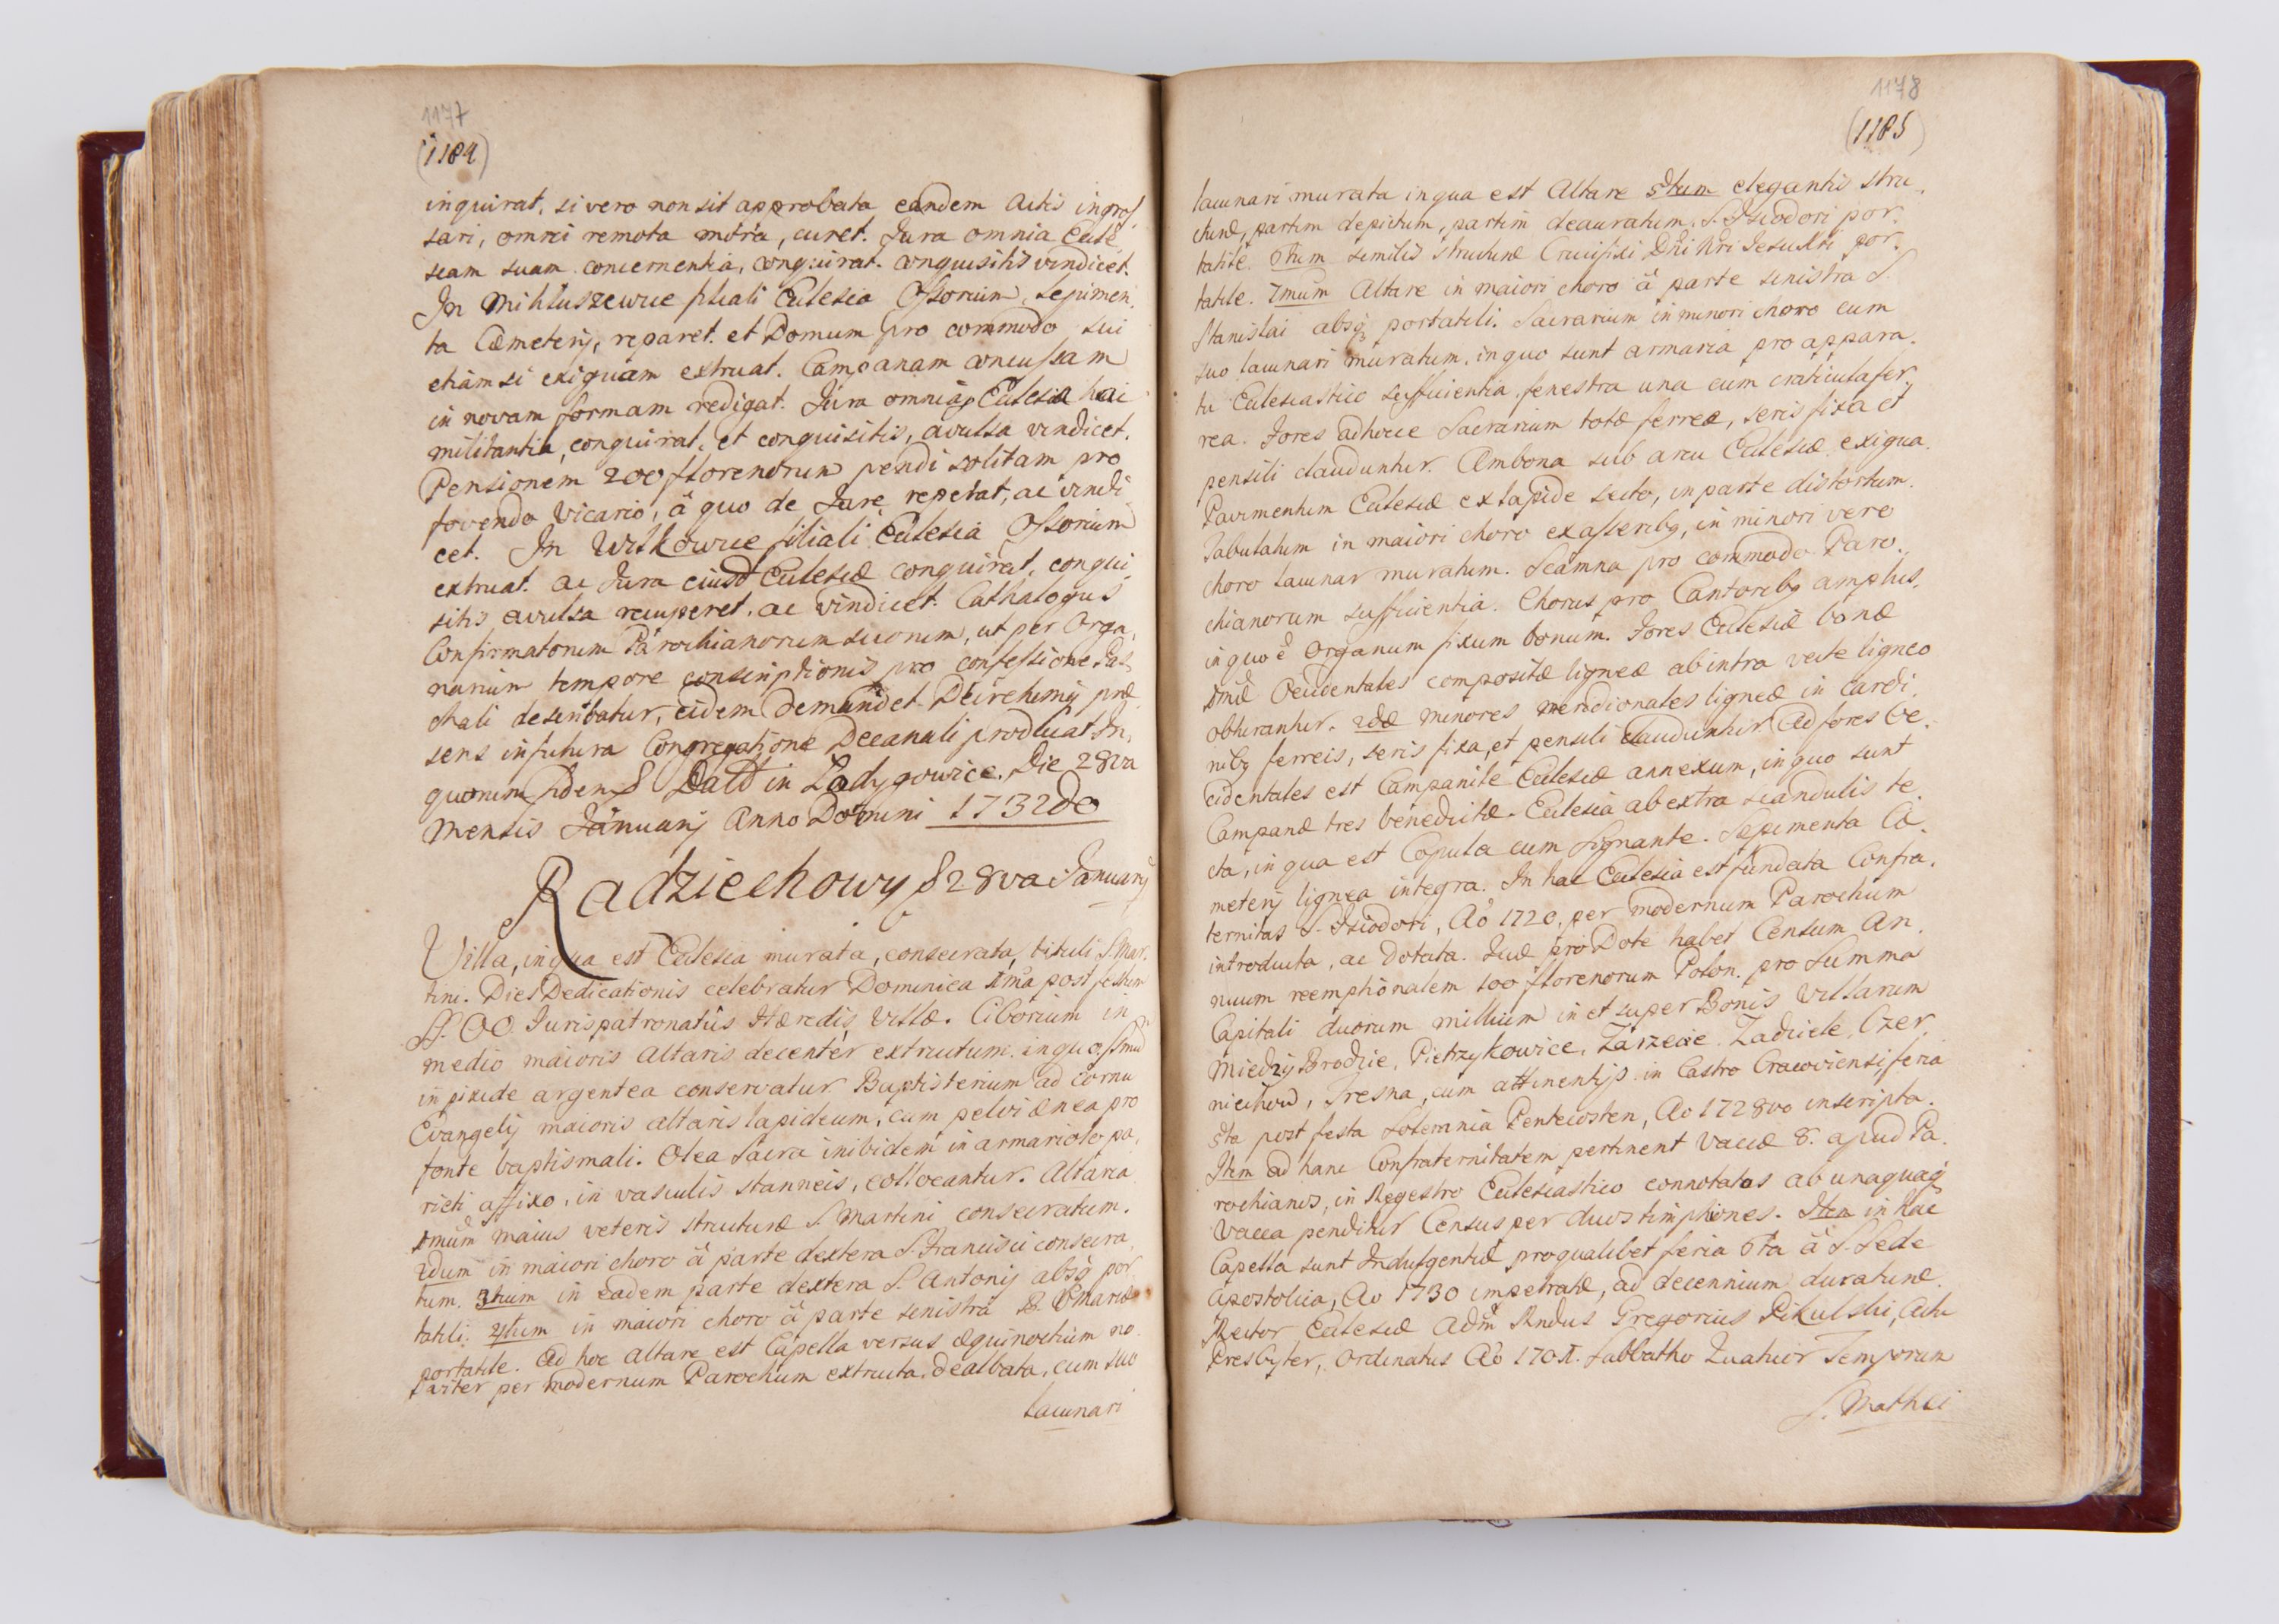 1177
(1184)
inquirat, si vero non sit approbata eandem Actis ingros,
sari, omni remota mora, curet. Jura omnia Eccle
siam suam concernentia, conquirat. conquisitis vindicet.
In Mikłuszewice filiali Ecclesia Ossorium, sepimen,
ta Cæmeterij, reparet. et Domum pro commodo sui
etiam si exiguam extruat. Campanam concussam
in novam formam redigat. Jura omnia, Ecclesiæ huic
militantia, conquirat, et conquisitis, avulsa vindicet.
Pensionem 200 florenorum pendi solitam pro
fovendo Vicario, à quo de Jure repetat, ac vindi
cet. In Witkowice filiali Ecclesia Ossorium
extruat. ac Jura eiusd Ecclesiæ conquirat, conqui
sitis avulsa recuperet. ac vindicet. Cathalogus
Confirmatorum Parochianorum suorum, ut per Orga,
narium tempore conscriptionis pro confessione Pas,
chali describatur, eidem demandet. Decretum præ
sens in futura Congregatione Decanali producat In,
quorum fidem Datt in Ładygowice. Die 28va
Mensis Januarij Anno Domini 1732do
Radziechowy 28va Januarij
Villa, in qua est Ecclesia murata, consecrata, tituli S. Mar,
tini. Dies Dedicationis celebratur Dominica 1ma post festum
SS. OO. Jurispatronatûs Hæredis Villæ. Ciborium in
medio maioris Altaris decentèr extructum. in quo SSmum
in pixide argentea conservatur Baptisterium ad cornu
Evangelij maioris altaris lapideum, cum pelvi ænea pro
fonte baptismali. Olea Sacra inibidem in armariolo pa,
rieti affixo, in vasculis stanneis, collocantur. Altaria
1mum maius veteris structuræ S. Martini consecratum.
2dum in maiori choro à parte dextera S. Francisci consecra,
tum. 3tium in eadem parte dextera S. Antonij absq por
tatili. 4tum in maiori choro à parte senistra B. V Mariæ
portatile. Ad hoc Altare est Capella versus æquinoctium no
viter per modernum Parochum extructa, dealbata, cum suo
lacunari
1178
(1185)
lacunari murata in qua est Altare 5tum elegantis stru,
cturæ, partim depictum, partim deauratum, S. Isiodori por,
tatile. 6tum similis structuræ Crucifixi Dni Nri Jesu Xti por,
tatile. 7mum Altare in maiori choro à parte senistra S.
Stanislai absq portatili. Sacrarium in minori choro cum
suo lacunari muratum, in quo sunt armaria pro appara,
tu Ecclesiastico sufficientia, fenestra una cum craticula fer,
rea. Fores ad hocce Sacrarium totæ ferreæ, seris fixa et
pensili clauduntur. Ambona sub arcu Ecclesiæ exigua.
Pavimentum Ecclesiæ ex lapide secto, in parte distortum.
Tabulatum in maiori choro ex asseribq, in minori vero
choro lacunar muratum. Scamna pro commodo Paro,
chianorum sufficientia. Chorus pro Cantoribq amplus,
in quo ê Organum fixum bonum. Fores Ecclesiæ bonæ
1mæ Occidentales compositæ ligneæ ab intra vecte ligneo
obturantur. 2dæ minores meridionales ligneæ in cardi,
nibq ferreis, seris fixa, et pensili clauduntur. Ad fores Oc,
cidentales est Campanile Ecclesiæ annexum, in quo sunt
Campanæ tres benedictæ. Ecclesia ab extra scandulis te,
cta, in qua est Copula cum Signante. Sepimenta Cæ,
meterij lignea integra. In hac Ecclesia est fundata Confra,
ternitas S. Isiodori, Aô 1720. per modernum Parochum
introducta, ac Dotata. Quæ pro Dote habet Censum An,
nuum reemptionalem 100 florenorum Polon. pro Summa
Capitali duorum millium in et super Bonis Villarum
Miedzy Brodzie, Pietrzykowice, Zarzecie, Zadziele, Czer,
niechow, Tresna, cum attinentijs in Castro Cracoviensi, feria
5ta post festa Solemnia Pentecosten, Ao 1728vo inscripta.
Item ad hanc Confraternitatem pertinent Vaccæ 8. apud Pa,
rochianos, in Regestro Ecclesiastico connotatos ab unaquaq
Vacca penditur Census per duos timphones. Item in hac
Capella sunt Indulgentiæ pro qualibet feria 6ta à S. Sede
Apostolica, Ao 1730 impetratæ, ad decennium duraturæ.
Rector Ecclesiæ Adm Rndus Gregorius Pikulski, Actu
Presbyter, Ordinatus Aô Sabbatho Quatuor Temporum
S. Mathei